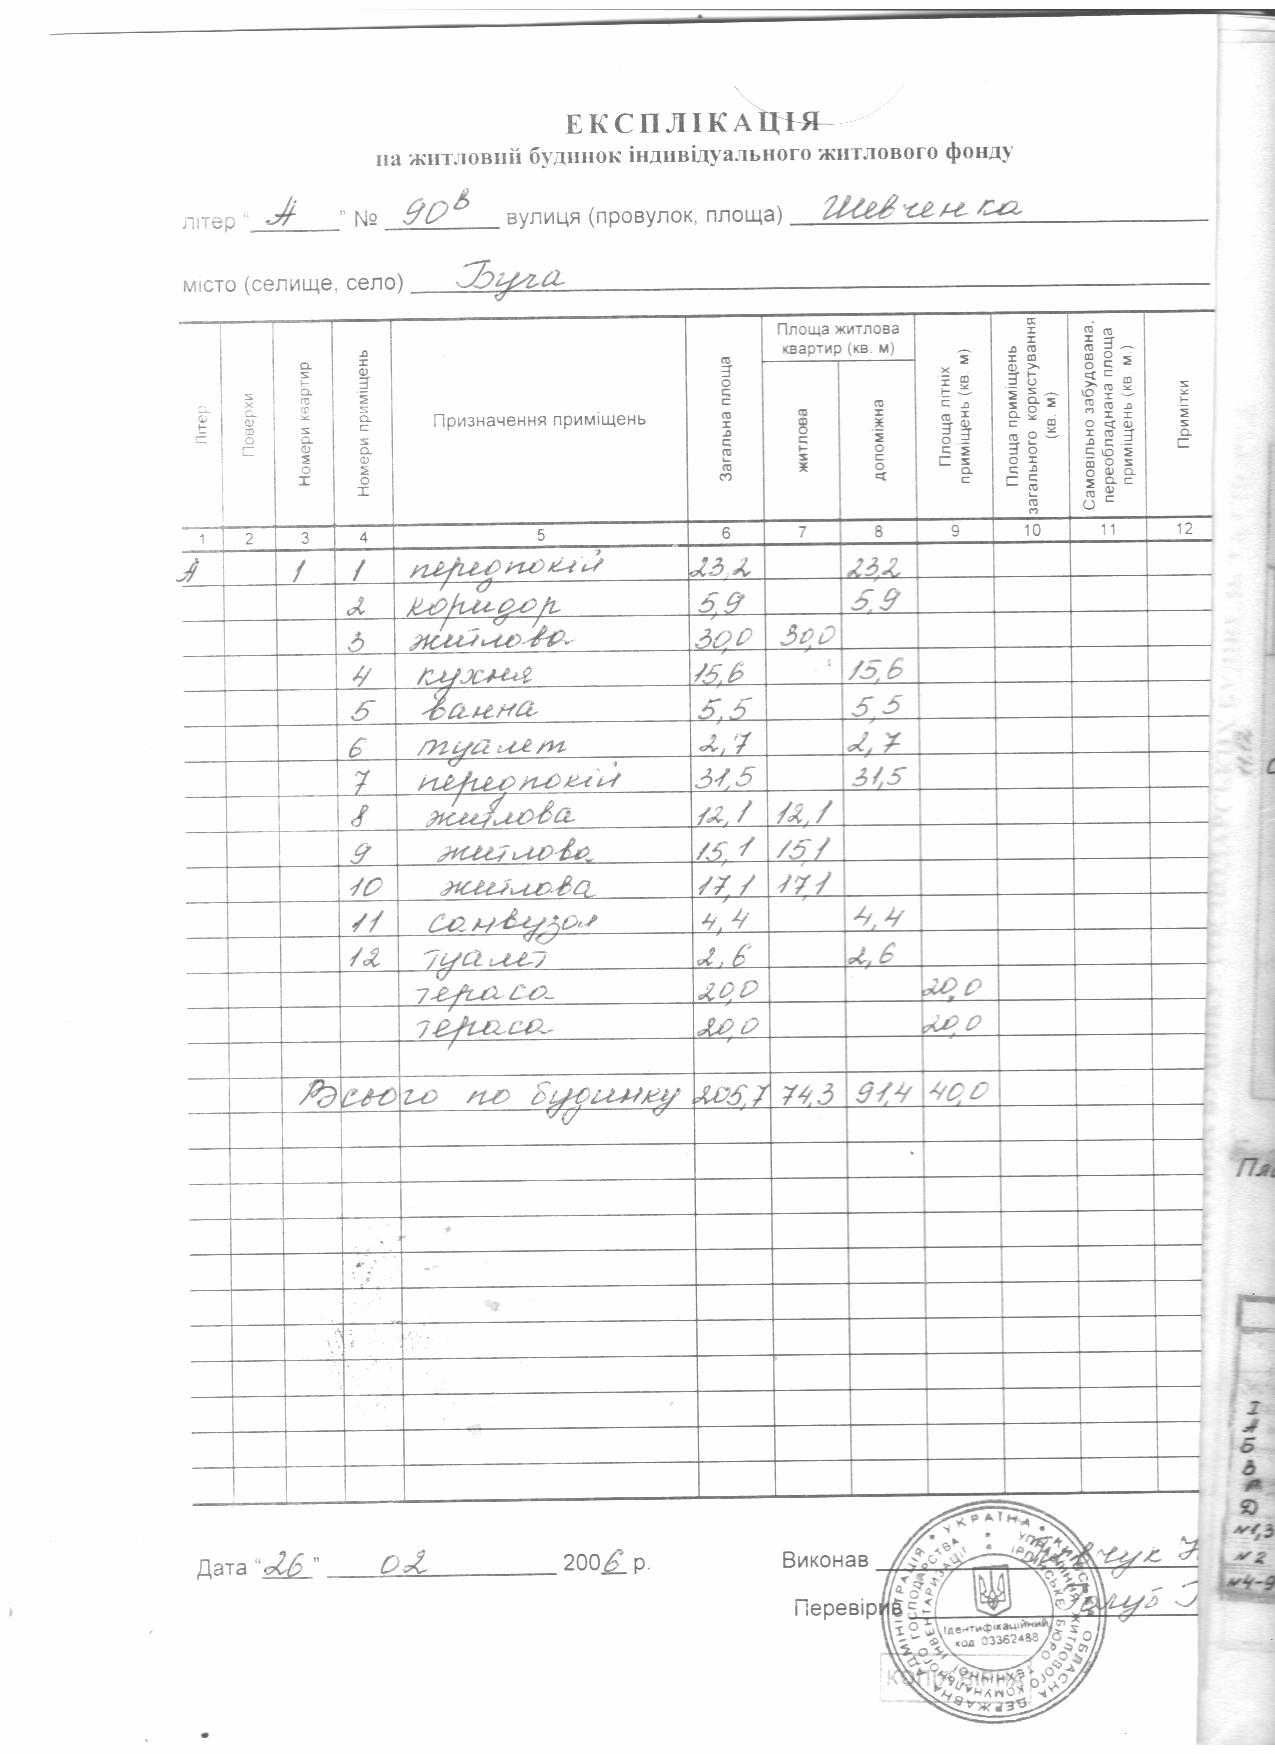 ЕКСПЛІКАЦІЯ
на житловий будинок індивідуального житлового фонду
літер “ А ” № 90в вулиця (провулок, площа) Шевченка
місто (селище, село) Буча
Літер Поверхи Номери квартир Номери приміщень Призначення приміщень Загальна площа Площа житлова квартир (кв. м) житлова допоміжна Площа літніх приміщень (кв. м) Площа приміщень загального користування (кв. м) Самовільно збудована, переобладнана площа приміщень (кв. м.) Примітки
1 2 3 4 5 6 7 8 9 10 11 12
А 1 1 передпокій 23,2 23,2
2 коридор 5,9 5,9
3 житлова 30,0 30,0
4 кухня 15,6 15,6
5 ванна 5,5 5,5
6 туалет 2,7 2,7
7 передпокій 31,5 31,5
8 житлова 12,1 12,1
9 житлова 15,1 15,1
10 житлова 17,1 17,1
11 санвузол 4,4 4,4
12 туалет 2,6 2,6
тераса 20,0 20,0
тераса 20,0 20,0
Всього по будинку 205,7 74,3 91,4 40,0
Дата “26” 02 2006 р. Виконав
Перевірив
УКРАЇНА
Ідентифікаційний
код 03362488
І
А
Б
В
Д
№1,3
№2
№4-9